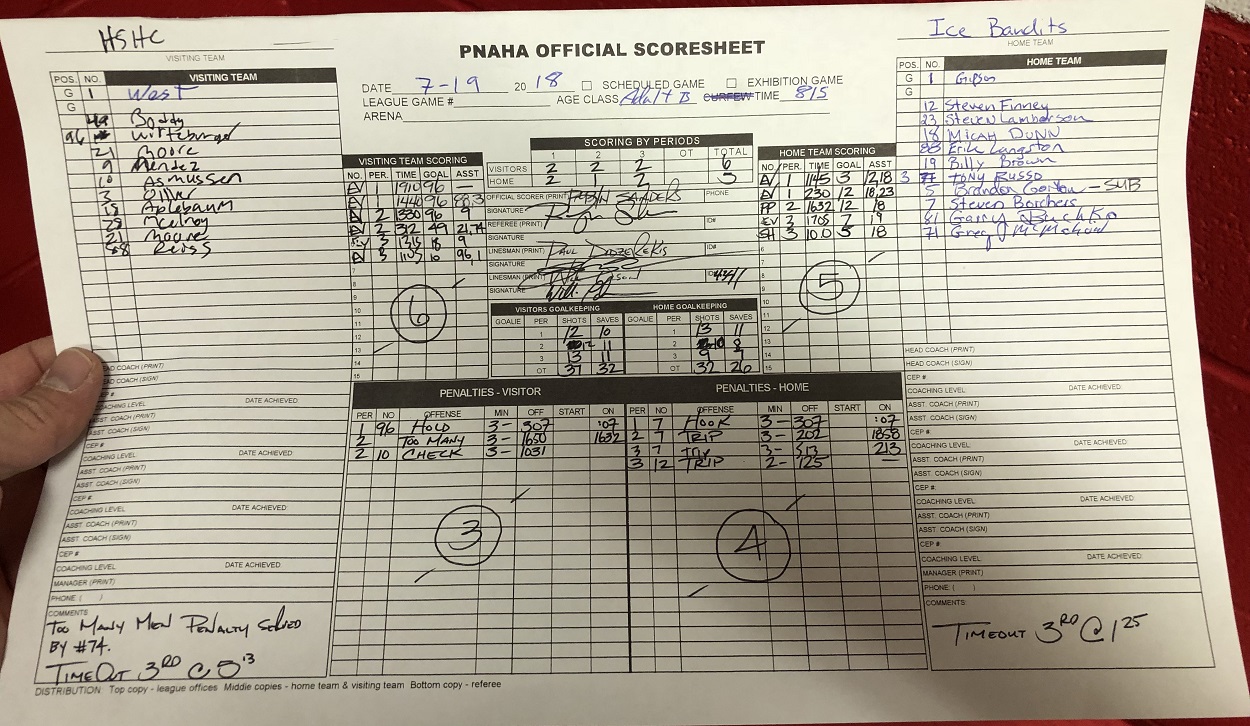 HSHC
VISITING TEAM
PNAHA OFFICIAL SCORESHEET
Ice Bandits
HOME TEAM
DATE 7-19 2018 SCHEDULED GAME EXHIBITION GAME
LEAGUE GAME # AGE CLASS Adult B CURFEW TIME 815
ARENA
POS. NO. VISITING TEAM
G 1 West
G
49 Boddy
96
21 Moore
9 Mendez
10 Asmussen
3
15 Aplebaum
29 McElroy
21 Moore
Reiss
VISITING TEAM SCORING
NO. PER. TIME GOAL ASST
EV 1 1910 96 —
EV 1 1440 96 88,3
EV 2 1330 96 9
EV 2 312 49 21,74
EV 3 1315 18 9
EV 3 1105 10 96,1
7
8
9
10
11
12
13
14
15
6
SCORING BY PERIODS
1 2 3 OT TOTAL
VISITORS 2 2 2 6
HOME 2 1 2 5
OFFICIAL SCORER (PRINT) PHONE
SIGNATURE
REFEREE (PRINT) ID#
SIGNATURE
LINESMAN (PRINT) PAUL ID#
SIGNATURE
LINESMAN (PRINT) ID#
SIGNATURE
VISITORS GOALKEEPING HOME GOALKEEPING
GOALIE PER SHOTS SAVES GOALIE PER SHOTS SAVES
1 12 10 1 13 11
2 12 11 2 10 8
3 13 11 3 9 7
OT 37 32 OT 32 26
HOME TEAM SCORING
NO. PER. TIME GOAL ASST
EV 1 1145 3 12,18
EV 1 230 12 18,23
PP 2 1632 12 18
EV 3 1705 7 19
SH 3 100 5 18
6
7
8
9
10
11
12
13
14
15
5
POS. NO. HOME TEAM
G 1 Gipson
G
12 Steven Finney
23 Steven Lamberson
18 MICAH DUNN
88 Erik Langston
19 Billy Brown
3 TONY RUSSO
5 Brandon Gorton - SUB
7 Steven Borchers
81 Garry
71 Greg McMahon
PENALTIES - VISITOR
PER NO OFFENSE MIN OFF START ON
1 96 HOLD 3- 307 :07
2 TOO MANY 3- 1650 1632
2 10 CHECK 3- 1031
3
PENALTIES - HOME
PER NO OFFENSE MIN OFF START ON
1 7 HOOK 3- 307 :07
2 7 TRIP 3- 202 1858
3 7 3- 513 213
3 12 TRIP 2- 125 —
4
HEAD COACH (PRINT)
HEAD COACH (SIGN)
CEP #
COACHING LEVEL DATE ACHIEVED
ASST. COACH (PRINT)
ASST. COACH (SIGN)
CEP #
COACHING LEVEL DATE ACHIEVED
ASST. COACH (PRINT)
ASST. COACH (SIGN)
CEP #
COACHING LEVEL DATE ACHIEVED
ASST. COACH (PRINT)
ASST. COACH (SIGN)
CEP #
COACHING LEVEL DATE ACHIEVED
MANAGER (PRINT)
PHONE ( )
COMMENTS
TOO MANY MEN PENALTY SERVED
BY #74.
TIMEOUT 3RD @ 5 13
HEAD COACH (PRINT)
HEAD COACH (SIGN)
CEP #
COACHING LEVEL DATE ACHIEVED
ASST. COACH (PRINT)
ASST. COACH (SIGN)
CEP #
COACHING LEVEL DATE ACHIEVED
ASST. COACH (PRINT)
ASST. COACH (SIGN)
CEP #
COACHING LEVEL DATE ACHIEVED
ASST. COACH (PRINT)
ASST. COACH (SIGN)
CEP #
COACHING LEVEL DATE ACHIEVED
MANAGER (PRINT)
PHONE ( )
COMMENTS
TIMEOUT 3RD @ 1 25
DISTRIBUTION Top copy - league offices Middle copies - home team & visiting team Bottom copy - referee